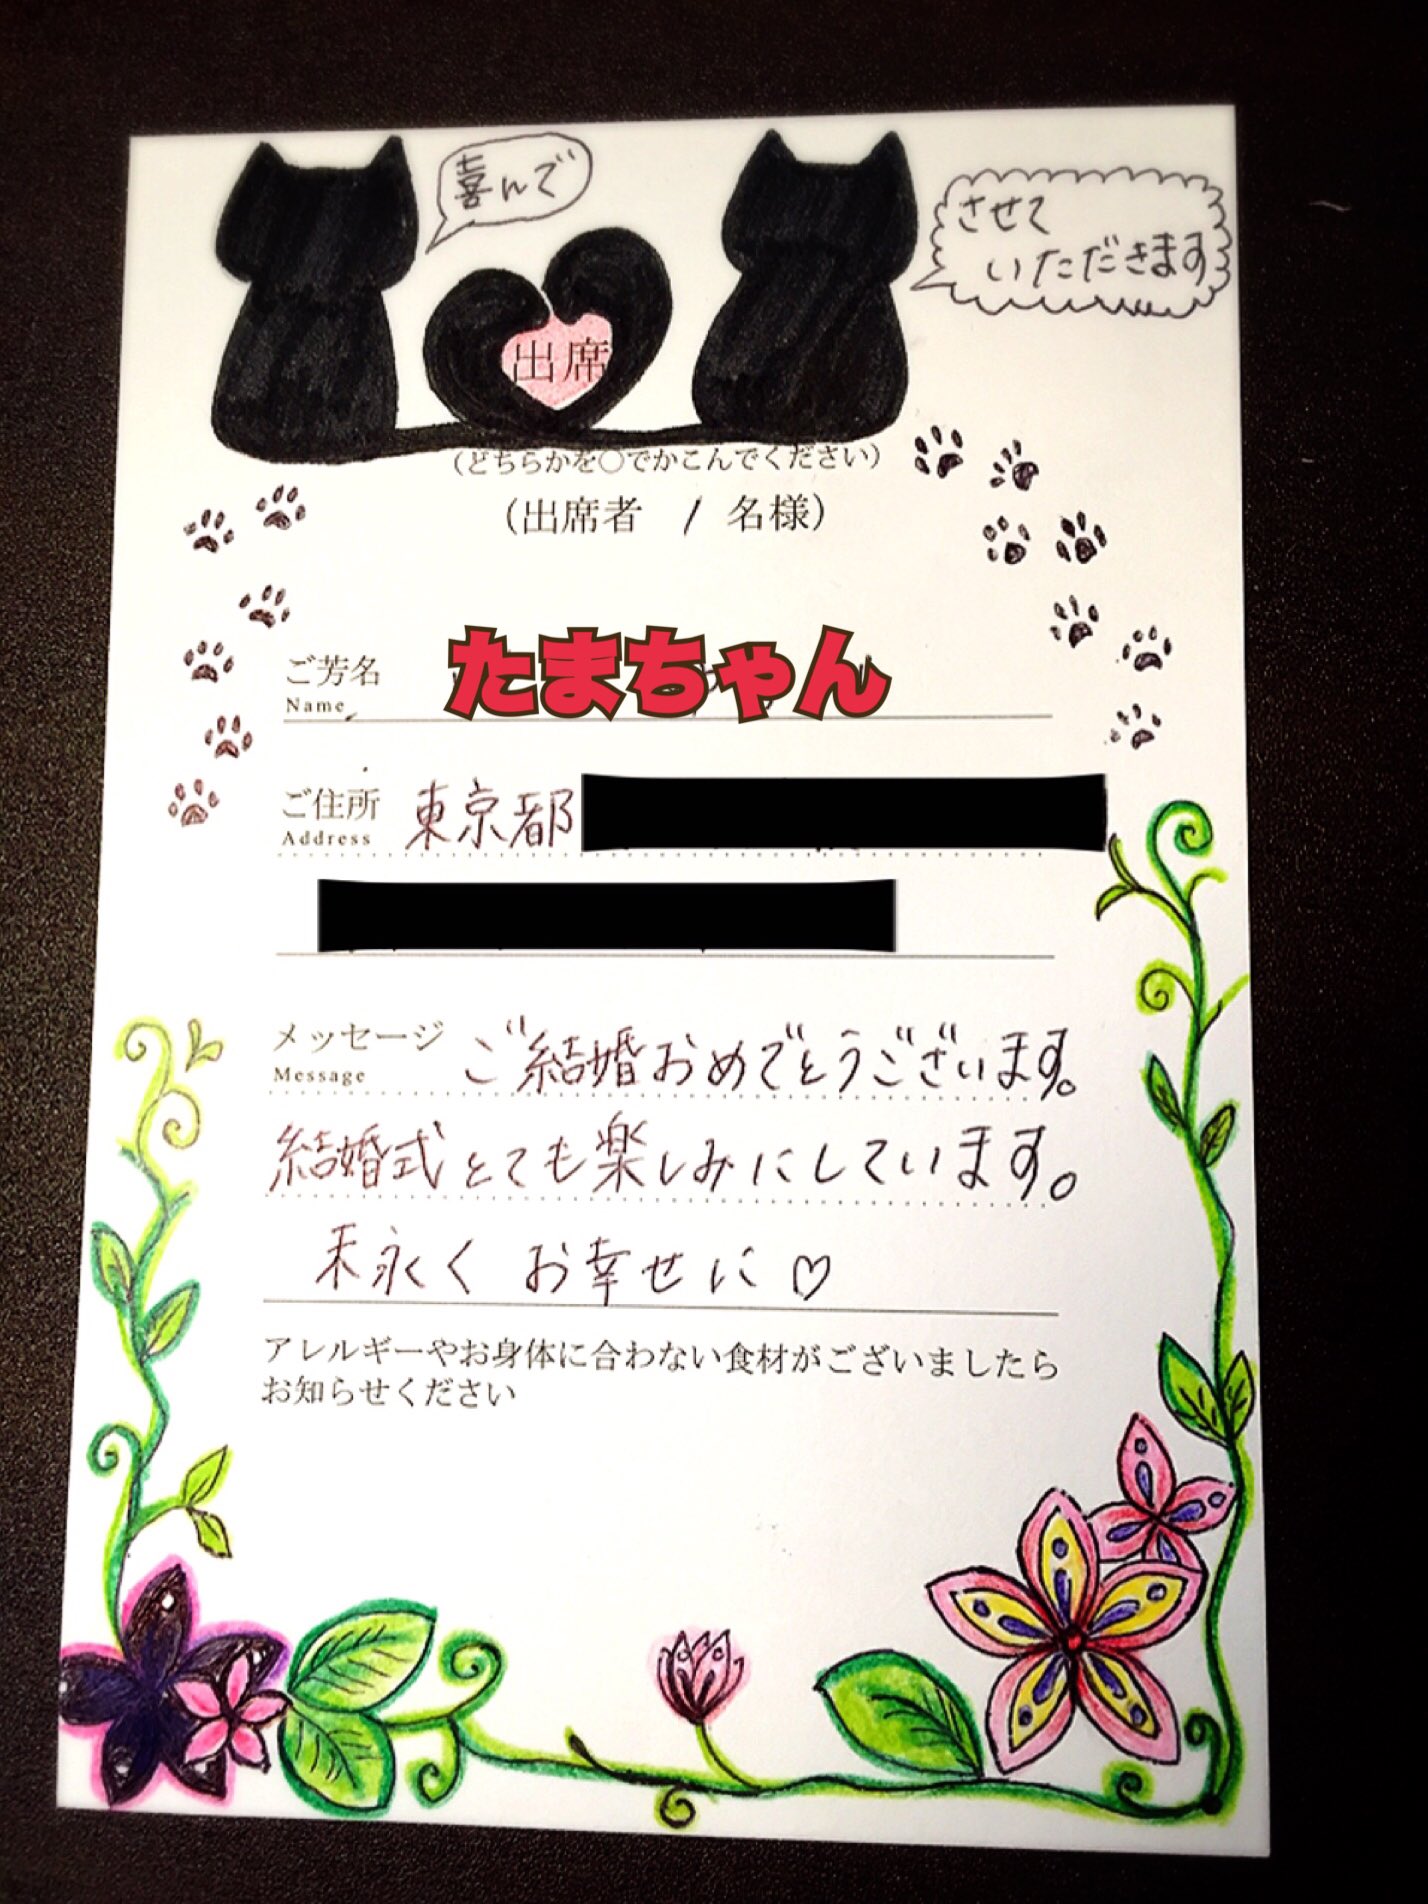 喜んで
させて
いただきます
出席
(どちらかを○でかこんでください)
(出席者 1 名様)
ご芳名 たまちゃん
Name
ご住所 東京都
Address
メッセージ ご結婚おめでとうございます。
Message
結婚式とても楽しみにしています。
末永く お幸せに♡
アレルギーやお身体に合わない食材がございましたら
お知らせください